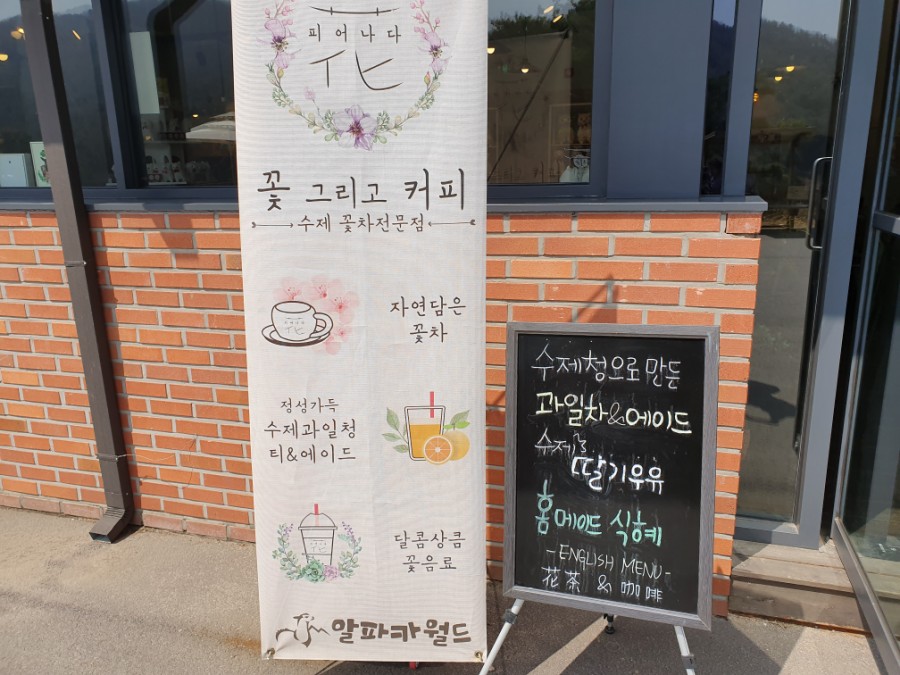 피어나다
花
꽃 그리고 커피
수제 꽃차전문점
자연담은
꽃차
정성가득
수제과일청
티&에이드
달콤상큼
꽃음료
알파카월드
수제청으로 만든
과일차&에이드
수제청
딸기우유
홈메이드 식혜
-ENGLISH MENU-
花茶 & 咖啡